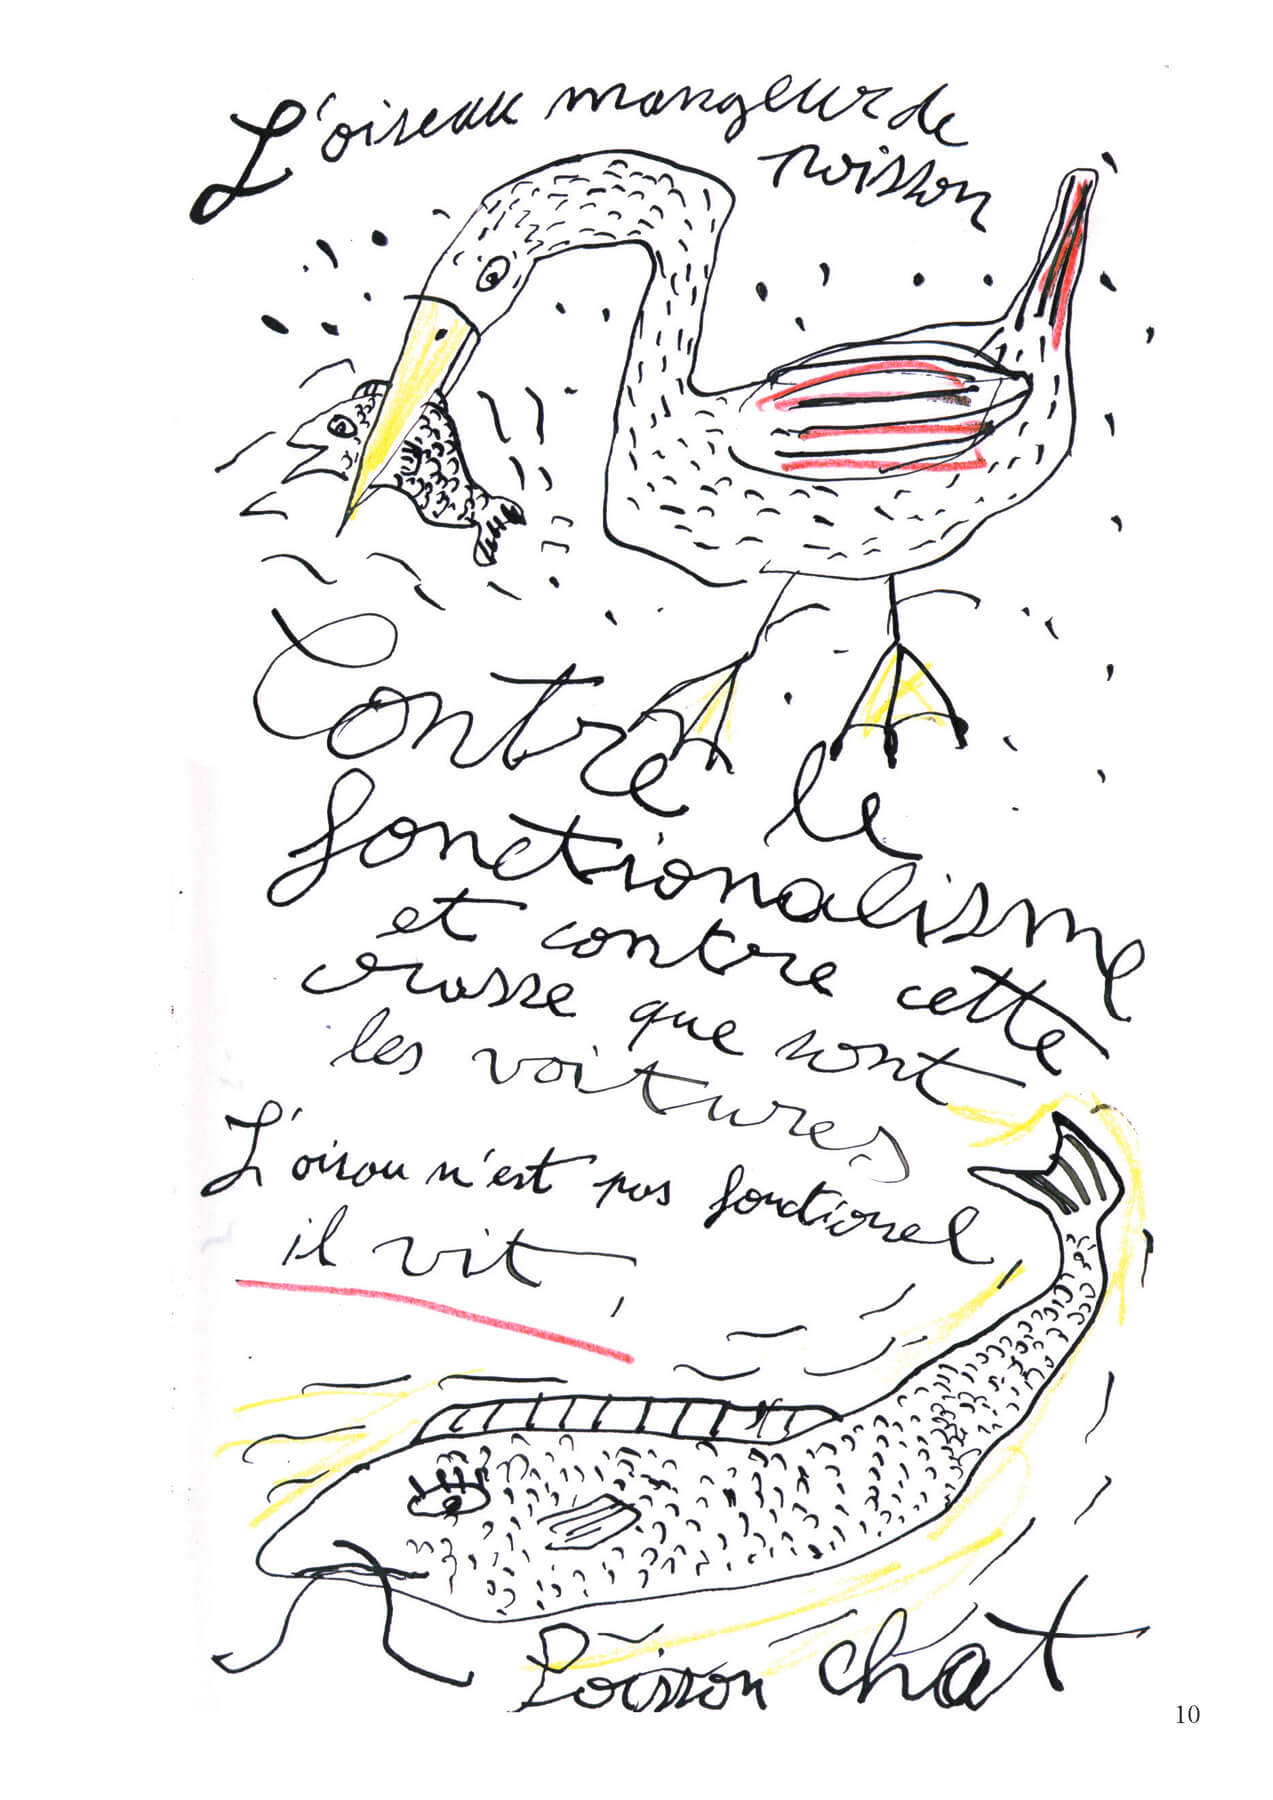 L'oiseau mangeur de
poisson
Contre le
fonctionalisme
et contre cette
crasse que sont
les voitures
L'oisou n'est pas fonctionel
il vit,
Poisson chat
10